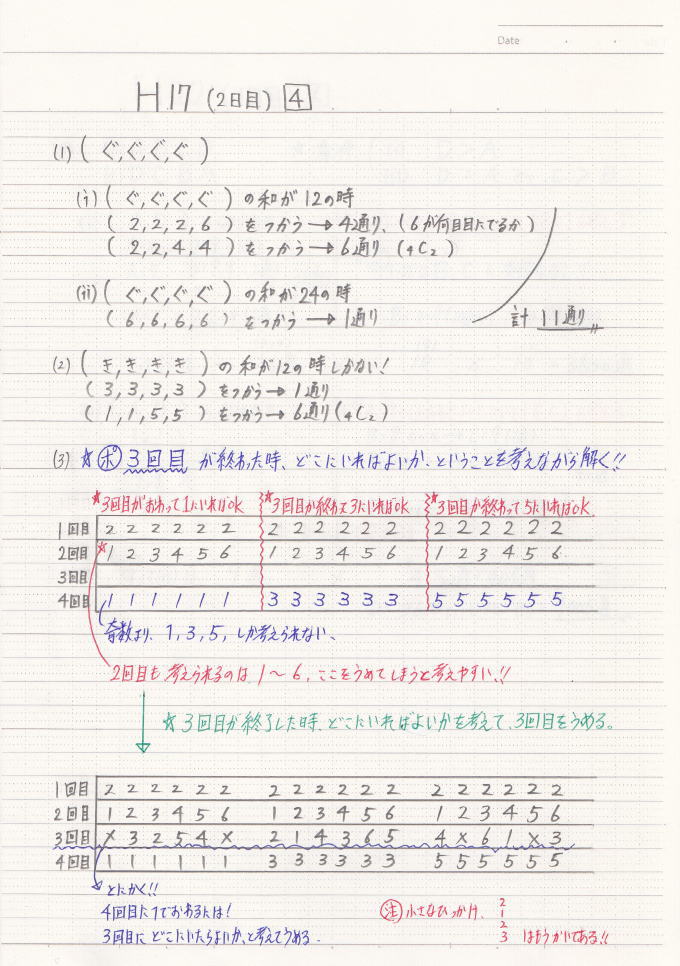 Date
H17 (2日目) 4
(1) ( ぐ,ぐ,ぐ,ぐ )
(i) ( ぐ,ぐ,ぐ,ぐ ) の和が12の時
( 2,2,2,6 ) をつかう→4通り、(6が何回目にでるか)
( 2,2,4,4 ) をつかう→6通り (4C2)
(ii) ( ぐ,ぐ,ぐ,ぐ ) の和が24の時
( 6,6,6,6 ) をつかう→1通り
計 11通り〃
(2) ( き,き,き,き ) の和が12の時しかない!
( 3,3,3,3 ) をつかう→1通り
( 1,1,5,5 ) をつかう→6通り(4C2)
(3) ☆ポ 3回目 が終わった時、どこにいればよいか、ということを考えながら解く!!
☆3回目がおわって1にいればOK ☆3回目が終わって3にいればOK ☆3回目が終わって5にいればOK
1回目 2 2 2 2 2 2 2 2 2 2 2 2 2 2 2 2 2 2
2回目 ☆1 2 3 4 5 6 1 2 3 4 5 6 1 2 3 4 5 6
3回目
4回目 1 1 1 1 1 1 3 3 3 3 3 3 5 5 5 5 5 5
奇数より、1,3,5,しか考えられない、
2回目も考えられるのは1〜6,ここをうめてしまうと考えやすい!!
☆3回目が終了した時、どこにいればよいかを考えて、3回目をうめる。
1回目 2 2 2 2 2 2 2 2 2 2 2 2 2 2 2 2 2 2
2回目 1 2 3 4 5 6 1 2 3 4 5 6 1 2 3 4 5 6
3回目 × 3 2 5 4 × 2 1 4 3 6 5 4 × 6 1 × 3
4回目 1 1 1 1 1 1 3 3 3 3 3 3 5 5 5 5 5 5
とにかく!!
4回目に1でおわるには!
3回目にどこにいたらよいか、と考えてうめる.
注 小さなひっかけ、
2
1
2
3 はもうかいてある!!